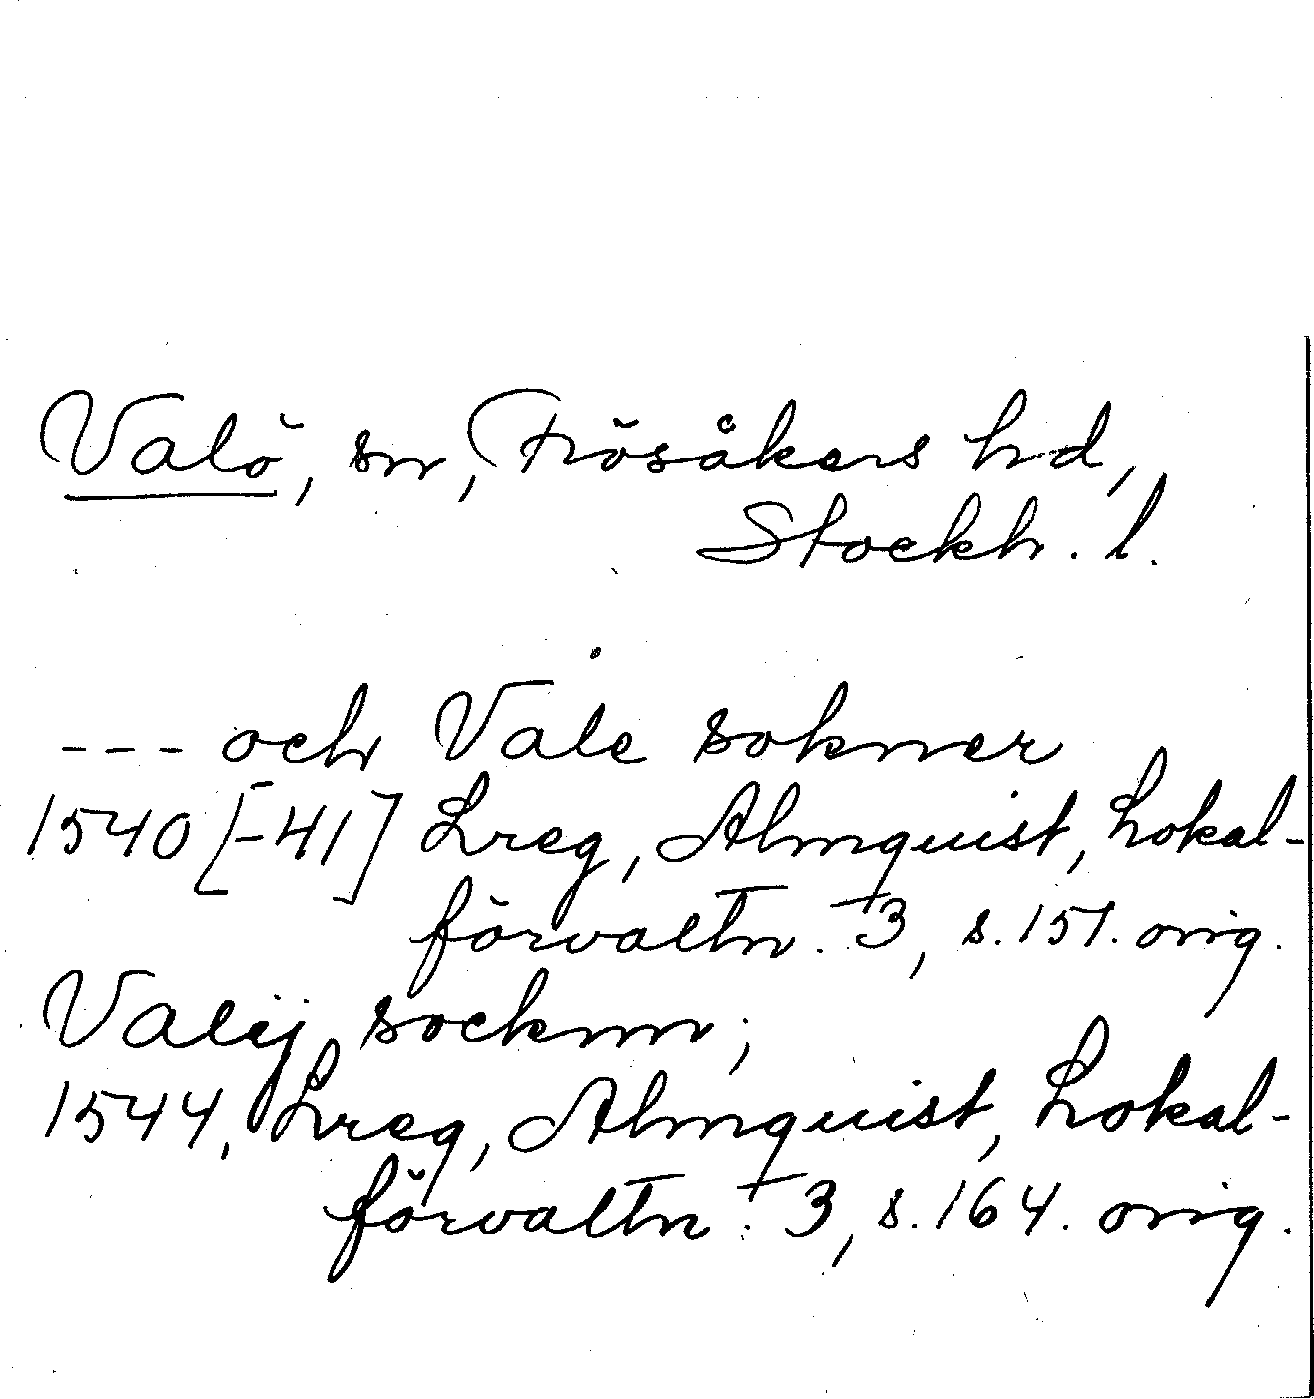 Valö, sn, Frösåkers hd,
Stockh. l.
--- och Vale sokner
1540 [-41] Lreg, Almquist, Lokal-
förvaltn. 3, s. 151. orig.
Valij socknn;
1544, Lreg, Almquist, Lokal-
förvaltn. 3, s. 164. orig.